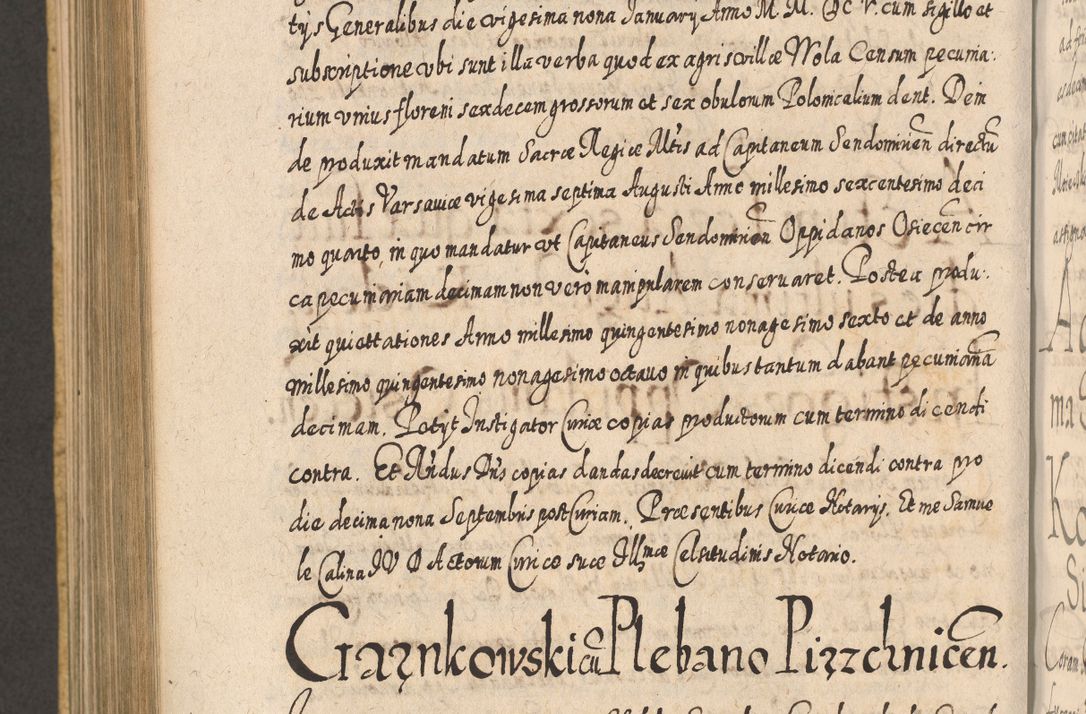 tijs Generalibus die vigesima nona Januarij Anno M. M. DC V. cum sigillo et
subscriptione vbi sunt illa verba quod ex agris villæ Wola Censum pecunia:
rium vnius floreni sexdecem grossorum et sex obulorum Polonicalium dent. Dein
de produxit mandatum Sacræ Regiæ Mtis ad Capitaneum Sendomirien̄ directū
de Actis Varsaviæ vigesima septima Augusti Anno millesimo sexcentesimo deci
mo quarto, in quo mandatur vt Capitaneus Sendomirien̄ Oppidanos Osiecen̄ cir
ca pecuniariam decimam non vero manipularem conservaret. Postea produ:
xit quiettationes Anno millesimo quingentesimo nonagesimo sexto et de anno
millesimo quingentesimo nonagesimo octavo in quibus tantum dabant pecuniariā
decimam. Petijt Instigator Curiæ copias productorum cum termino dicendi
contra. Et Rn̄dus Dn̄s copias dandas decrevit cum termino dicendi contra pro
die decima nona Septembris post Curiam. Præsentibus Curiæ Notarijs. Et me Samue
le Calina IV D Actorum Curiæ suæ Illmæ Celsitudinis Notario.
Grązynkowski cū Plebano Pirzchnicen̄.